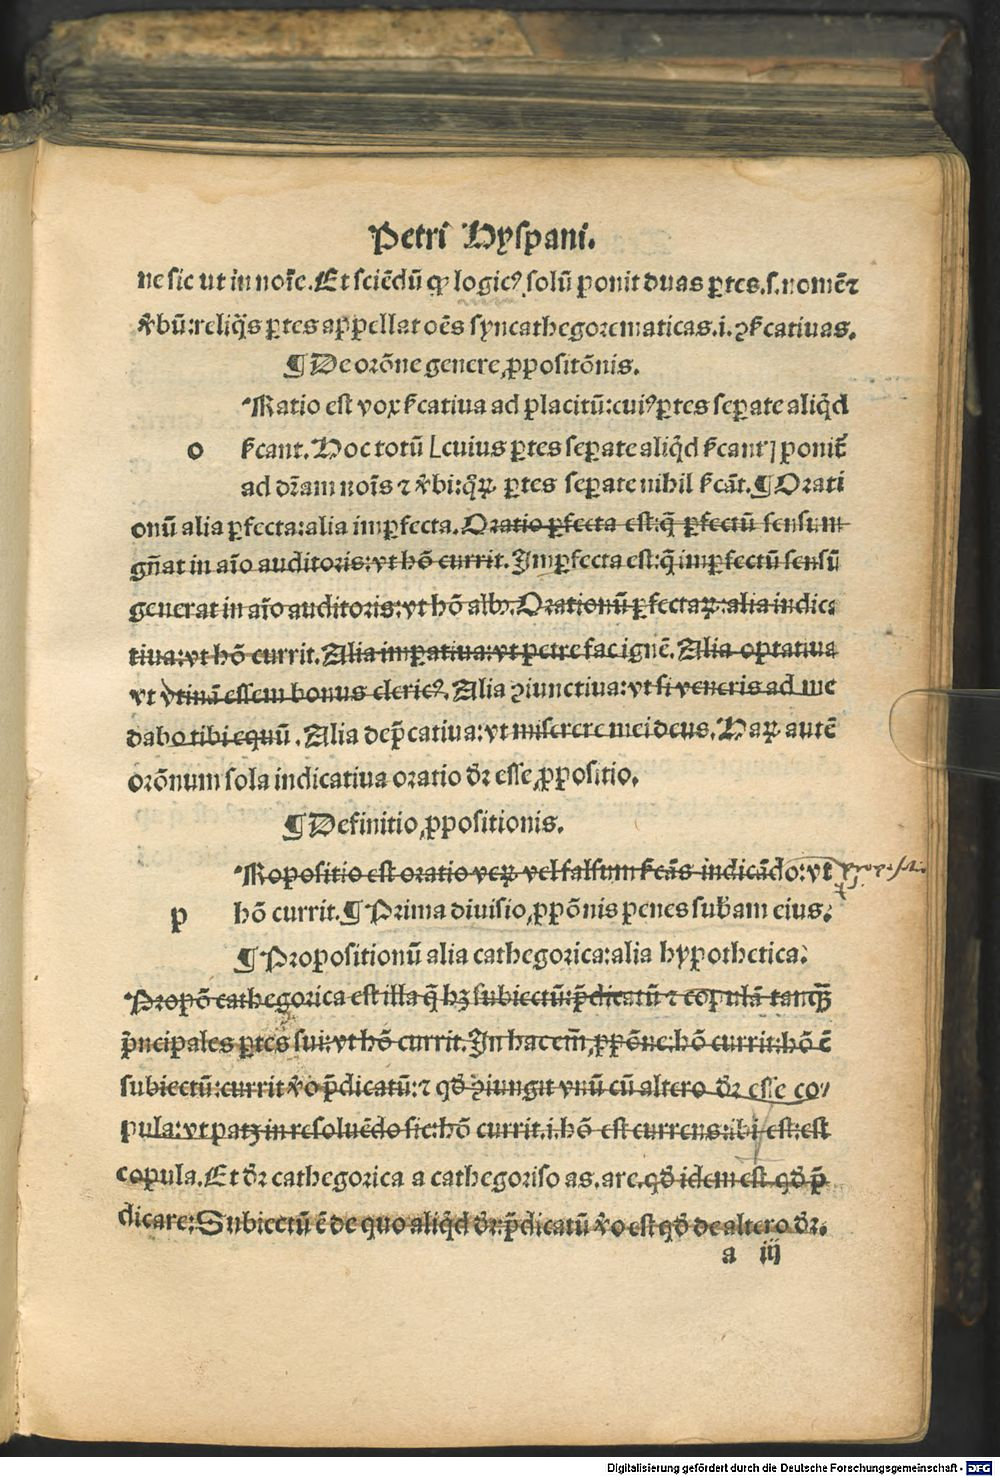 Petri Hyspani.
ne sic ut in noīe. Et sciēdū ꝙ logicꝰ solū ponit duas ꝑtes .s. nomē ⁊
v̓bū: reliq̄s ꝑtes appellat oēs syncathegorematicas .i. ꝯs̄catiuas.
¶ De orōne genere ꝓpositōnis.
Ratio est vox s̄catiua ad placitū: cuiꝰ ꝑtes seꝑate aliq̄d
o s̄cant. Hoc totū [cuius ꝑtes seꝑate aliq̄d s̄cant] ponit̄
ad dr̄am noīs ⁊ v̓bi: q̄ꝝ ꝑtes seꝑate nihil s̄cāt. ¶ Orati
onū alia ꝑfecta: alia imꝑfecta. Oratio ꝑfecta est: q̄ ꝑfectū sensum
gn̄at in aīo auditoris: vt hō currit. Imꝑfecta est: q̄ imꝑfectū sensū
generat in aīo auditoris: vt hō albꝰ. Orationū ꝑfectaꝝ: alia indica
tiua: vt hō currit. Alia imꝑatiua: vt petre fac ignē. Alia optatiua
vt vtinā essem bonus clericꝰ. Alia ꝯiunctiua: vt si veneris ad me
dabo tibi equū. Alia dep̄catiua: vt miserere mei deus. Haꝝ autē
orōnum sola indicatiua oratio dr̄ esse ꝓpositio.
¶ Definitio ꝓpositionis.
Ropositio est oratio veꝝ vel falsum s̄cās indicādo: vt propositio
p hō currit. ¶ Prima diuisio ꝓpōnis penes sub̄am eius.
¶ Propositionū alia cathegorica: alia hypothetica.
Propō cathegorica est illa q̄ hꝫ subiectū: p̄dicatū ⁊ copulā tanq̄ꝫ
p̄ncipales ꝑtes sui: vt hō currit. In hac em̄ ꝓpōne: hō currit: hō ē
subiectū: currit v̓o p̄dicatū: ⁊ qd̓ ꝯiungit vnū cū altero dr̄ esse co/
pula: vt patꝫ in resoluēdo sic: hō currit .i. hō est currens: ibi est: est
copula. Et dr̄ cathegorica a cathegoriso as. are. qd̓ idem est qd̓ p̄
dicare: Subiectū ē de quo aliq̄d dr̄: p̄dicatū v̓o est qd̓ de altero dr̄.
a iij
Digitalisierung gefördert durch die Deutsche Forschungsgemeinschaft - DFG